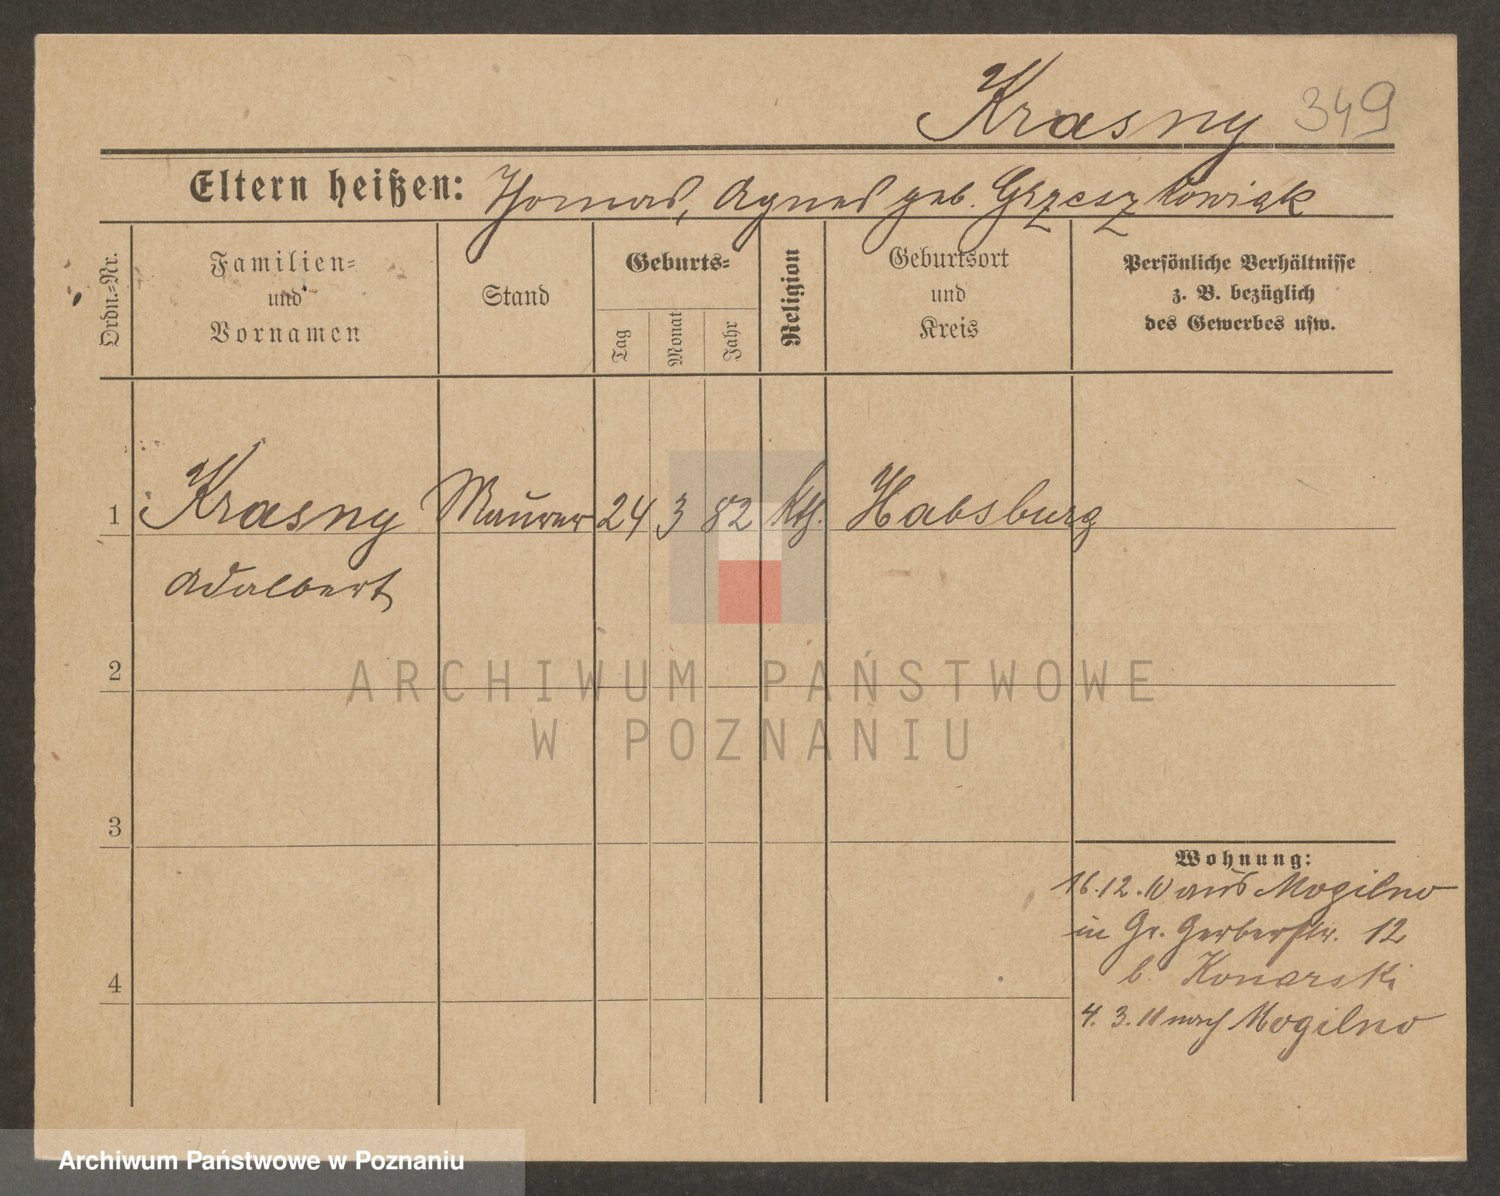 Krasny 349
Eltern heißen: Thomas, Agnes geb. Grzeszkowiak
Ordn.=Nr.
Familien=
und
Vornamen
Stand
Geburts=
Tag
Monat
Jahr
Religion
Geburtsort
und
Kreis
Persönliche Verhältnisse
z. B. bezüglich
des Gewerbes usw.
1 Krasny Maurer 24 3 82 kth. Habsburg
Adalbert
2
3
4
Wohnung:
16.12.10 aus Mogilno
in Gr. Gerberstr. 12
b. Konarski
4. 3. 11 nach Mogilno
ARCHIWUM PAŃSTWOWE
W POZNANIU
Archiwum Państwowe w Poznaniu